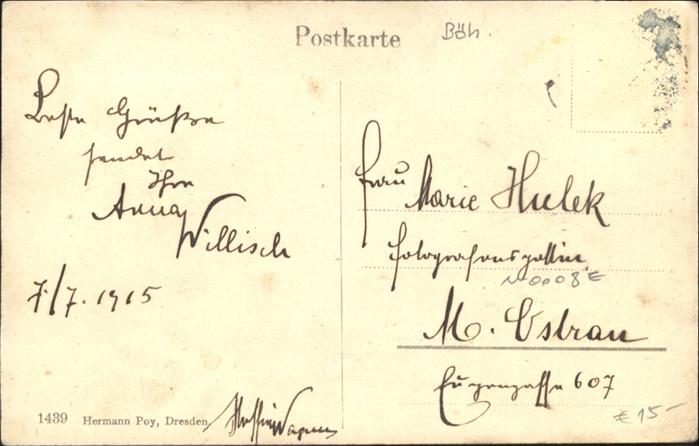 Postkarte
Böh.
Beste Grüße
sendet
Ihre
Anna
Willisch
7/7. 1915
Frau
Marie Hulek
Fotografensgattin
N0008E
M. Ostrau
Eugengasse 607
1439 Hermann Poy, Dresden
€ 15-